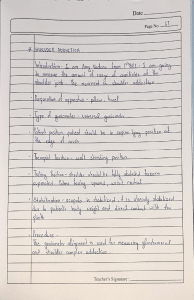 Date
Page No. 57
* SHOULDER ABDUCTION
Introduction - I am Any from 1st BPT. I am going
to measure the amount of range of available at the
shoulder joint. The movement is shoulder adduction
Preparation of apparatus - pillow, towel
Type of goniometer - universal goniometer
Patient position - patient should be in supine lying position at
the edge of couch
Therapist position - walk standing position
Testing position - shoulder should be fully abducted, forearm
supinated
Stabilization - scapula is stabilized. It is already stabilized
due to patients body weight and direct contact with the
plinth
Procedure -
The goniometer alignment is used for measuring glenohumeral
and shoulder complex adduction.
Teacher's Signature